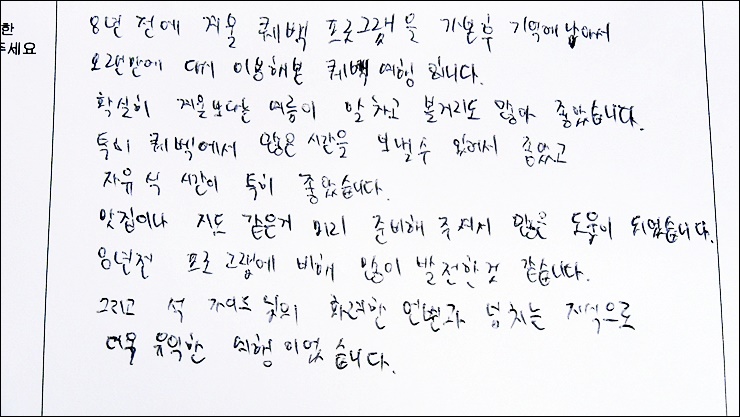 한
주세요
8년 전에 겨울 퀘백 프로그램을 가본후 기억에 남아서
오랜만에 다시 이용해본 퀘백 여행 입니다.
확실히 겨울보다는 여름이 알차고 볼거리도 많아 좋았습니다.
특히 퀘백에서 많은 시간을 보낼수 있어서 좋았고
자유 식 시간이 특히 좋았습니다.
맛집이나 지도 같은거 미리 준비해 주셔서 많은 도움이 되었습니다.
8년전 프로그램에 비해 많이 발전한것 같습니다.
그리고 석 가이드 님의 화려한 언변과 넘치는 지식으로
더욱 유익한 여행 이었습니다.